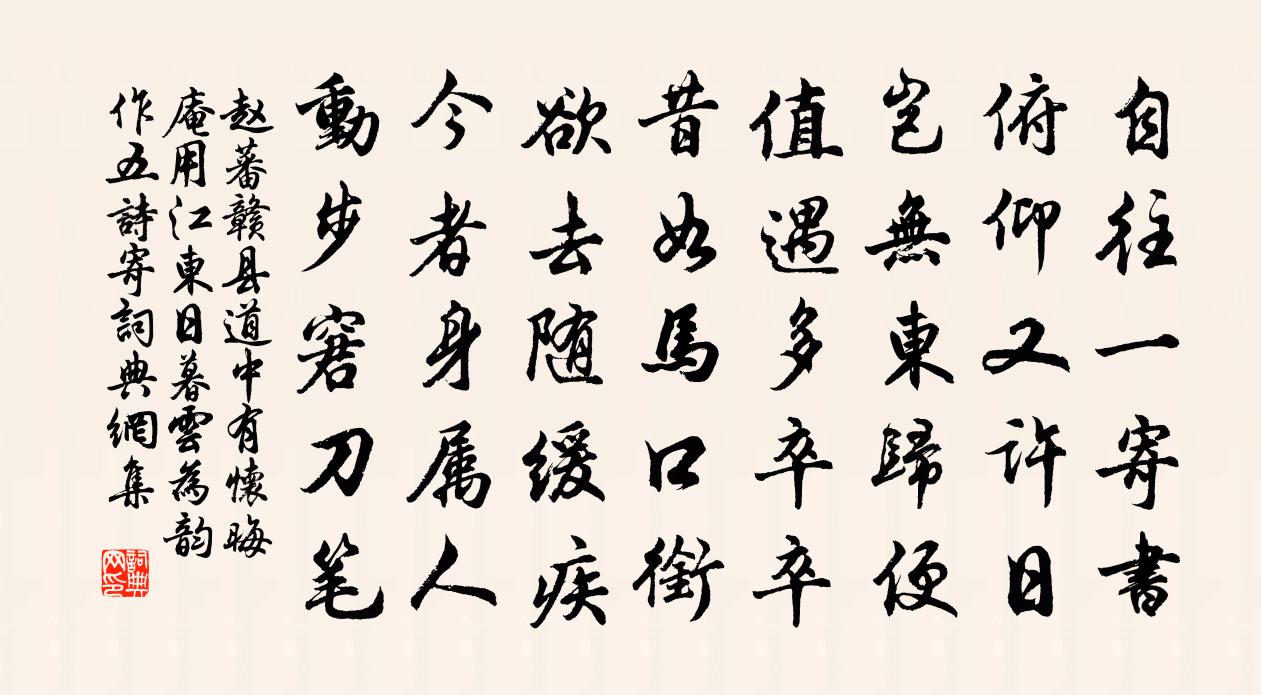 自往一寄書
俯仰又許日
豈無東歸便
值遇多卒卒
昔如馬口銜
欲去随緩疾
今者身属人
動步窘刀笔
赵蕃赣县道中有懷晦
庵用江東日暮雲為韵
作五詩寄詞典網集
詞典
网印